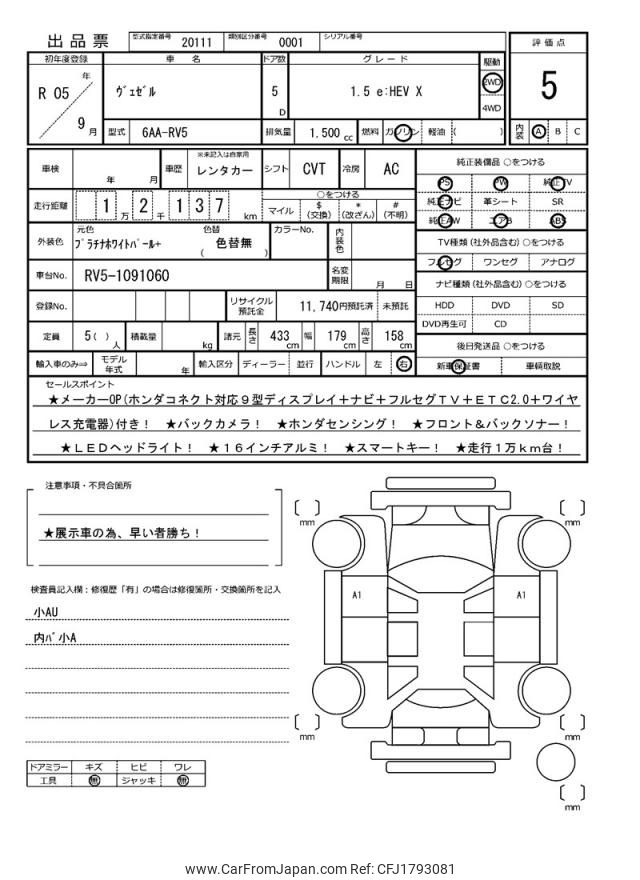 出品票 型式指定番号 20111 類別区分番号 0001 シリアル番号
評価点
5
初年度登録 車名 ドア数 グレード 駆動
R 05 年 9 月 ヴェゼル 5 D 1.5 e:HEV X 2WD 4WD
型式 6AA-RV5 排気量 1.500 cc 燃料 ガソリン 軽油 ( ) 内装 A B C
車検 年 月 車歴 ※未記入は自家用 レンタカー シフト CVT 冷房 AC
純正装備品 ○をつける
PS PW 純正TV
走行距離 1 万 2 千 1 3 7 km ○をつける
マイル $ (交換) * (改ざん) # (不明)
純正ナビ 革シート SR
純正AW エアB ABS
外装色 元色 プラチナホワイトパール+ 色替 ( 色替無 ) カラーNo. 内装色
TV種類 (社外品含む) ○をつける
フルセグ ワンセグ アナログ
車台No. RV5-1091060 名変期限 月 日
ナビ種類 (社外品含む) ○をつける
登録No. リサイクル預託金 11,740円預託済 未預託
HDD DVD SD
DVD再生可 CD
定員 5 ( ) 人 積載量 kg 諸元 長さ 433 cm 幅 179 cm 高さ 158 cm
後日発送品 ○をつける
輸入車のみ⇒ モデル年式 年 輸入区分 ディーラー 並行 ハンドル 左 右
新車保証書 車輌取説
セールスポイント
★メーカーOP(ホンダコネクト対応9型ディスプレイ+ナビ+フルセグTV+ETC2.0+ワイヤ
レス充電器)付き! ★バックカメラ! ★ホンダセンシング! ★フロント&バックソナー!
★LEDヘッドライト! ★16インチアルミ! ★スマートキー! ★走行1万km台!
注意事項・不具合箇所
★展示車の為、早い者勝ち!
検査員記入欄:修復歴「有」の場合は修復箇所・交換箇所を記入
小AU
内パ小A
mm
mm
A1
A1
mm
mm
mm
ドアミラー キズ ヒビ ワレ
工具 無 ジャッキ 無
www.CarFromJapan.com Ref: CFJ1793081